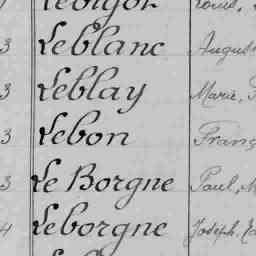 3 Leblanc August
3 Leblay Marie,
3 Lebon Franç
3 Le Borgne Paul, M
4 Leborgne Joseph,